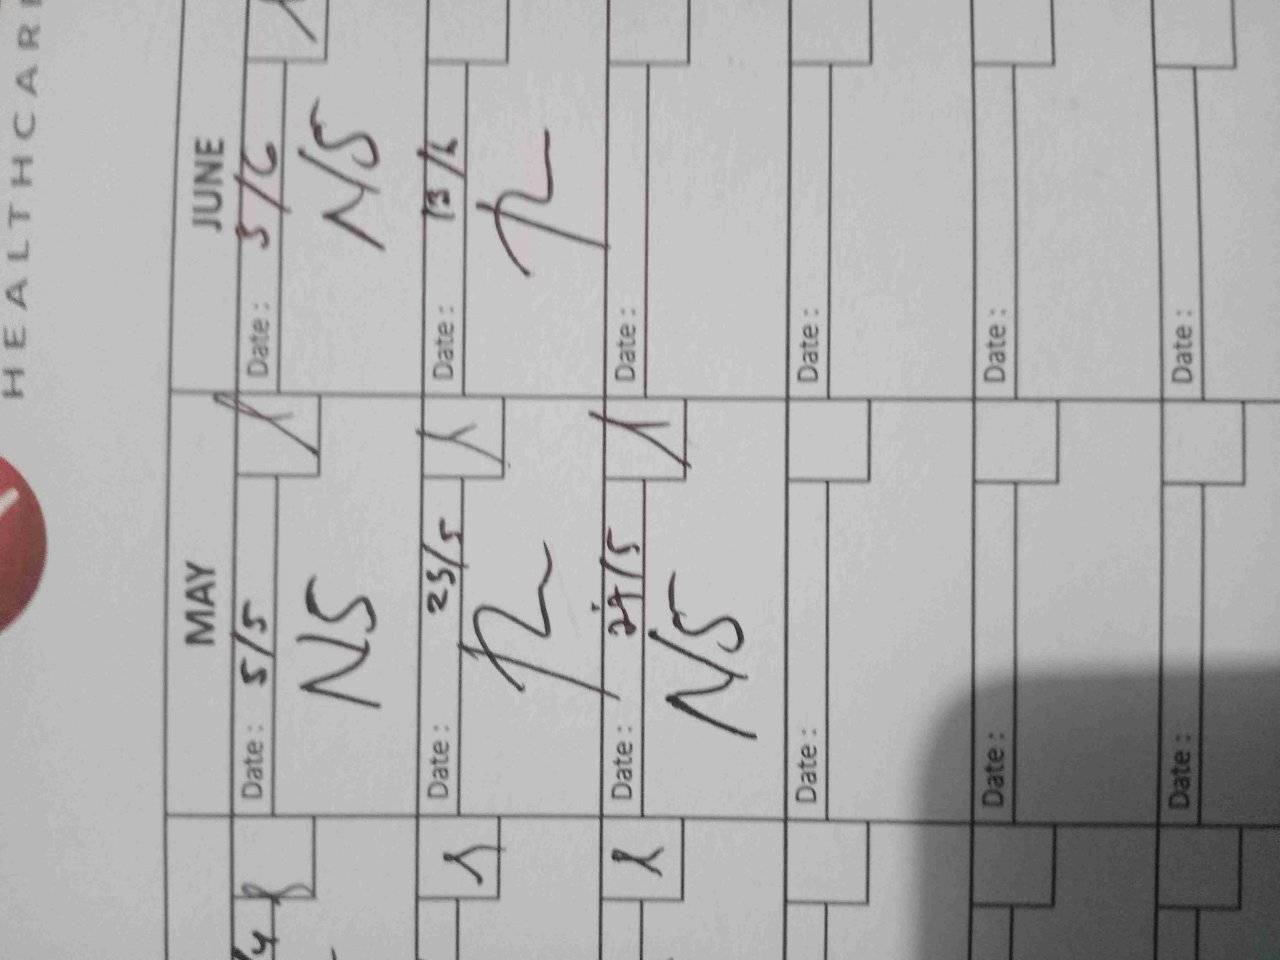 HEALTHCARE
MAY
JUNE
Date: 5/5
Date: 5/6
NS
N/S
Date: 23/5
Date: 13/6
Date:
Date:
N/S
Date:
Date:
Date:
Date:
Date:
Date: